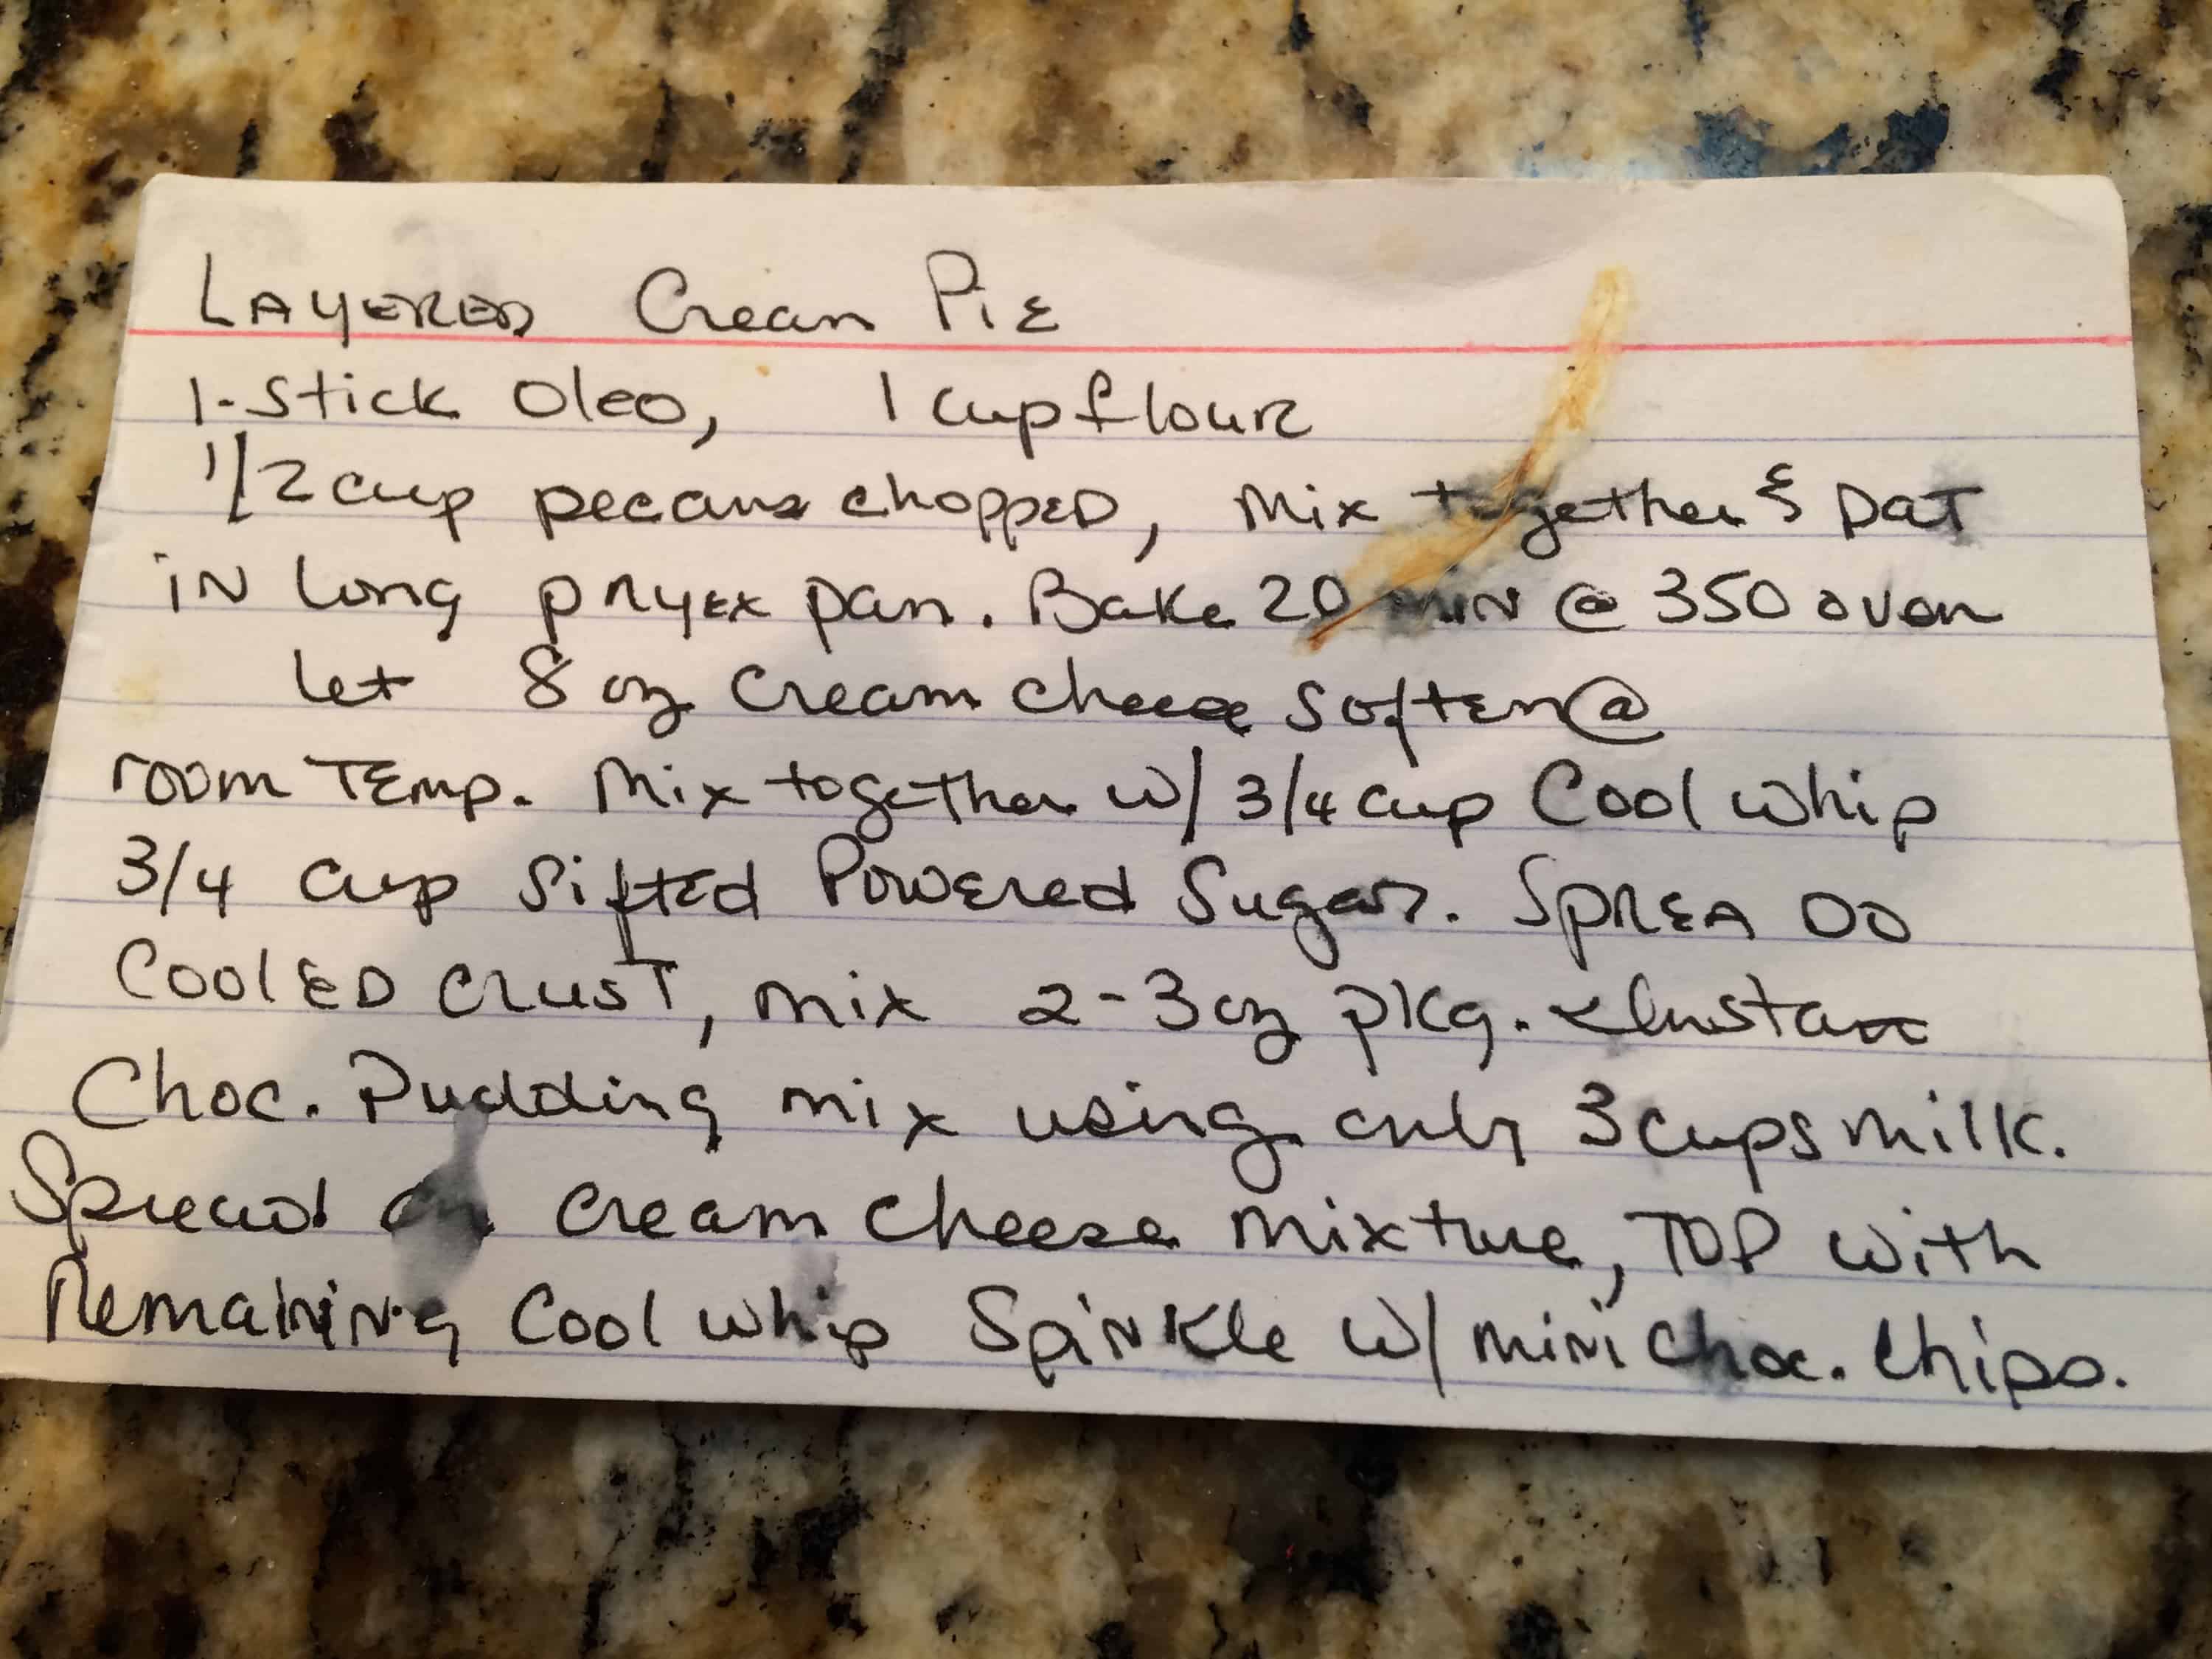 LAYERED Cream PiE
1-Stick Oleo, 1 cup flour
1/2 cup pecans chopped, Mix together & PaT
iN long pryex pan. Bake 20 MiN @ 350 oven
let 8 oz Cream cheese soften @
room TEmp. Mix together w/ 3/4 cup Cool whip
3/4 cup Sifted Powered Sugar. SPREA
CoolED CRUST, mix 2-3 oz pkg. Instant
Choc. Pudding mix using only 3 cups milk.
Spread on cream cheese mixture, TOP with
Remaining Cool whip Spinkle w/ mini choc. chips.